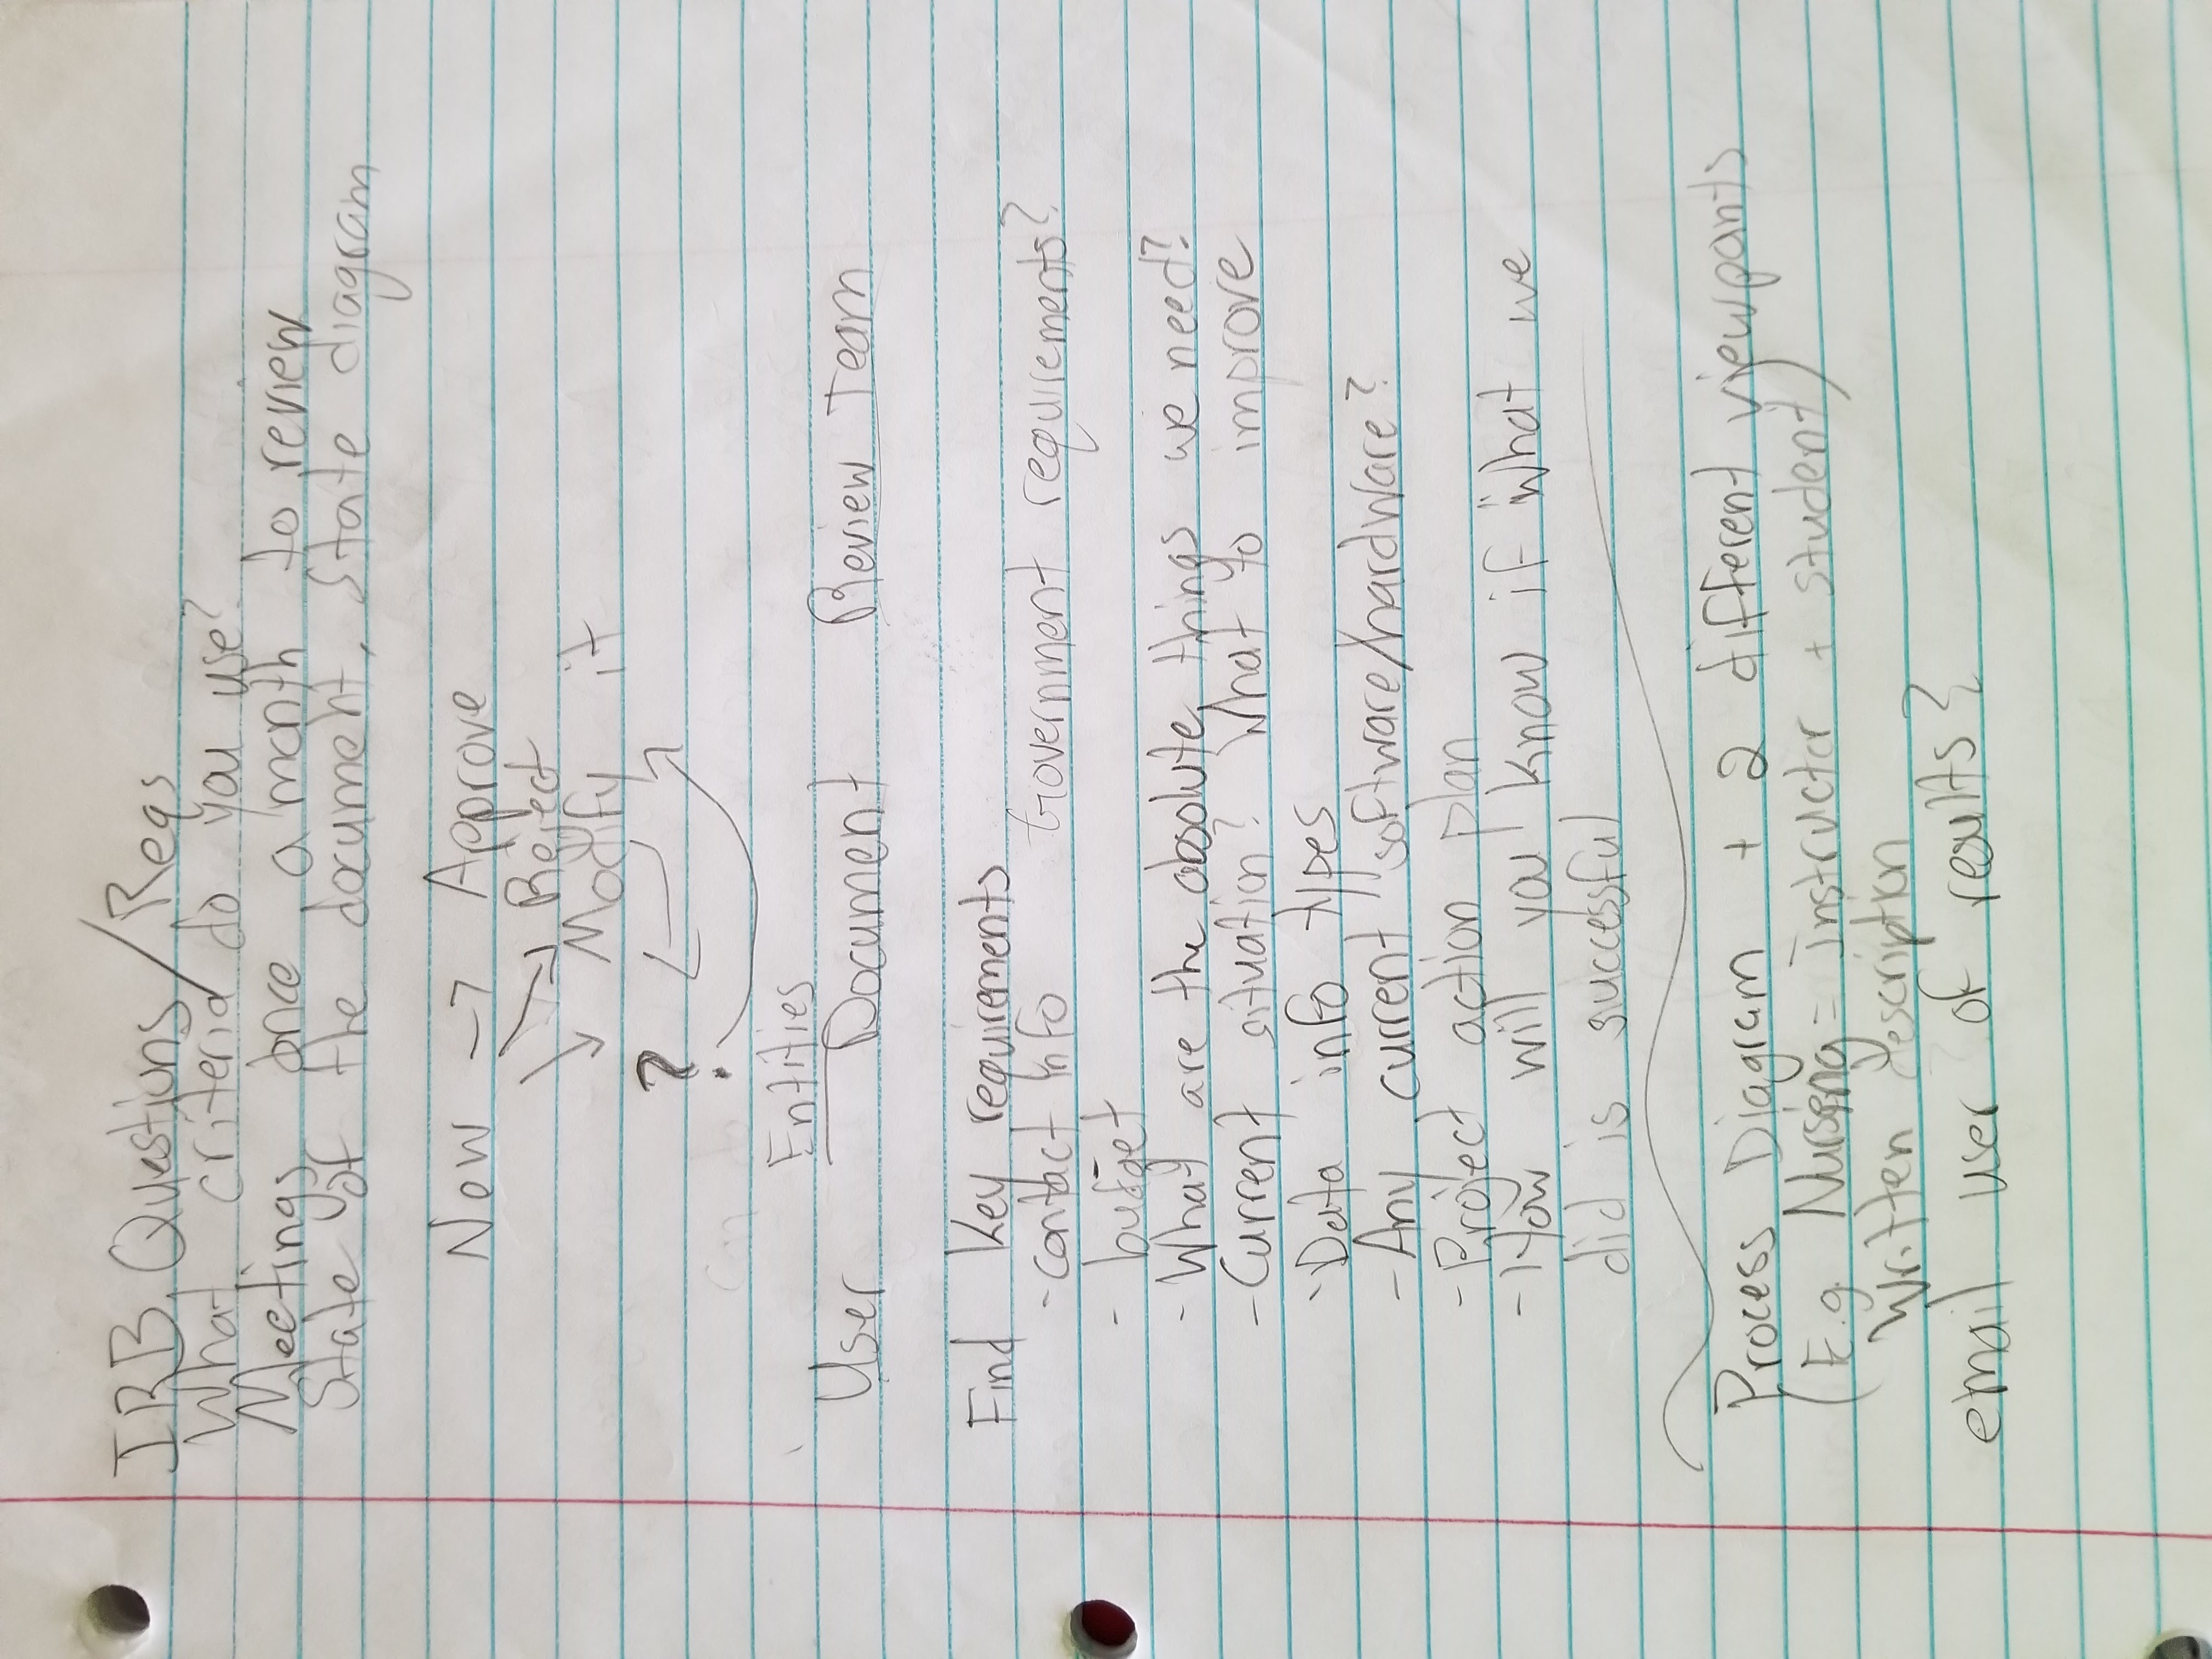 IRB Questions/Reqs
What criteria do you use?
Meetings once a month to review
State of the document, State diagram
New -> Approve
Reject
Modify it
?
Entities
User Document Review Team
Find Key requirements
- contact info Government requirements?
- budget
- What are the absolute things we need?
- Current situation? What to improve
- Data info types
- Any current software/hardware?
- Project action plan
- How will you know if what we
did is successful
Process Diagram + 2 different viewpoints
(E.g. Nursing = instructor + student)
Written description
email user of results?